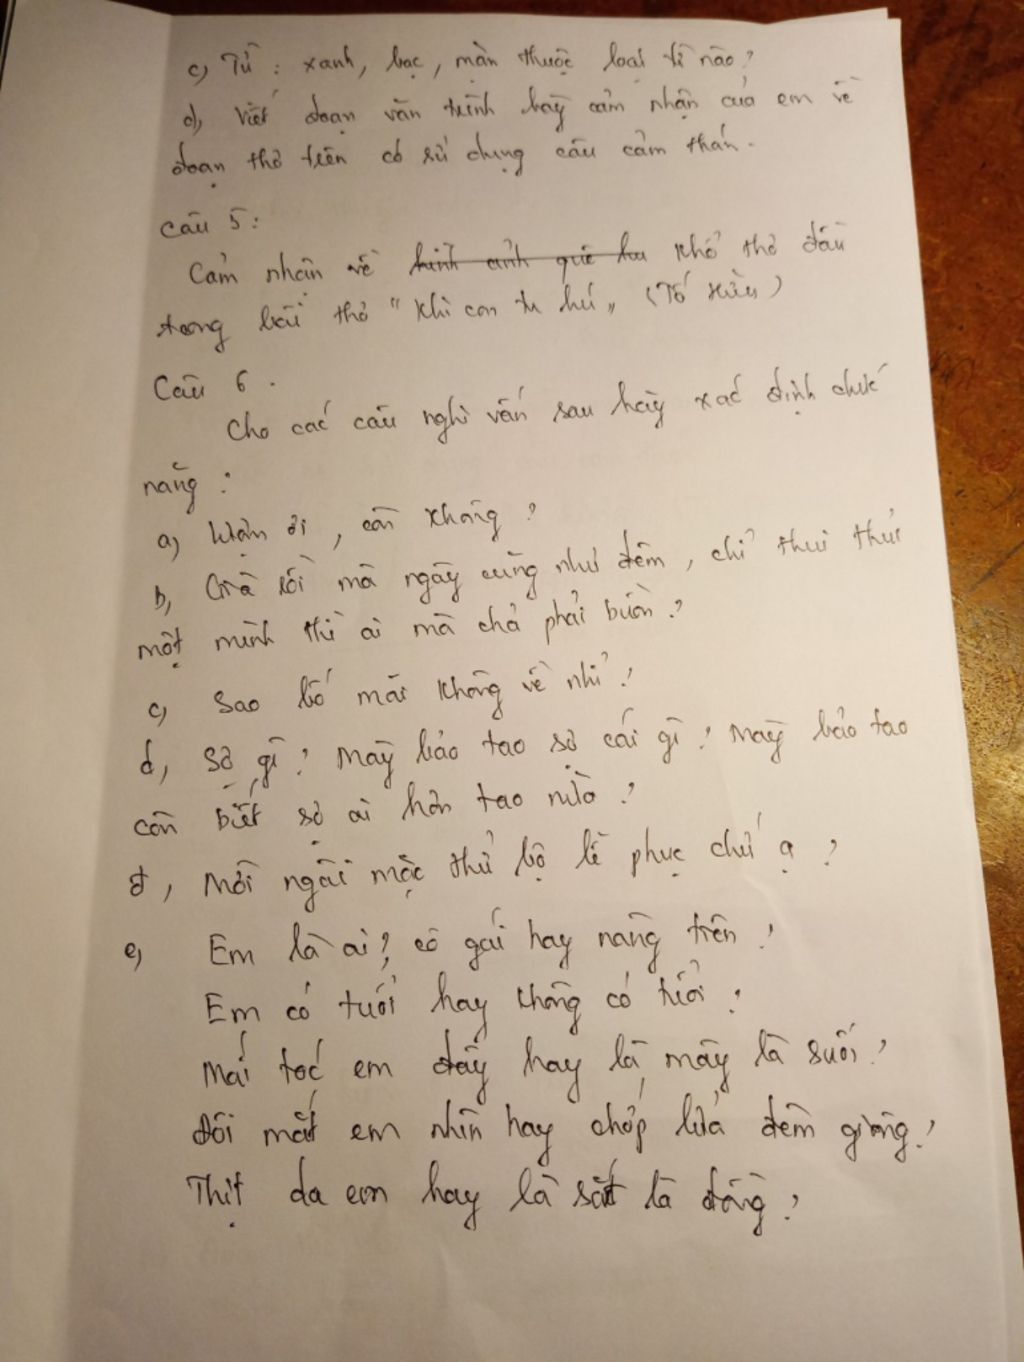 c, Từ : xanh, bạc, mặn thuộc loại từ nào?
d, Viết đoạn văn trình bày cảm nhận của em về
đoạn thơ trên có sử dụng câu cảm thán.
Câu 5:
Cảm nhận về hình ảnh quê hu khổ thơ đầu
trong bài thơ "Khi con tu hú" (Tố Hữu)
Câu 6.
Cho các câu nghi vấn sau hãy xác định chức
năng :
a, Lượm ơi, còn không?
b, Già rồi mà ngày cũng như đêm, chỉ thui thủi
một mình thì ai mà chả phải buồn?
c, Sao bố mãi không về nhỉ?
d, Sợ gì? Mày bảo tao sợ cái gì? Mày bảo tao
còn biết sợ ai hơn tao nữa?
đ, Mời ngài mặc thử bộ lễ phục chứ ạ?
e, Em là ai? cô gái hay nàng tiên?
Em có tuổi hay không có tuổi?
Mái tóc em đây hay là mây là suối?
Đôi mắt em nhìn hay chớp lửa đêm giông?
Thịt da em hay là sắt là đồng?